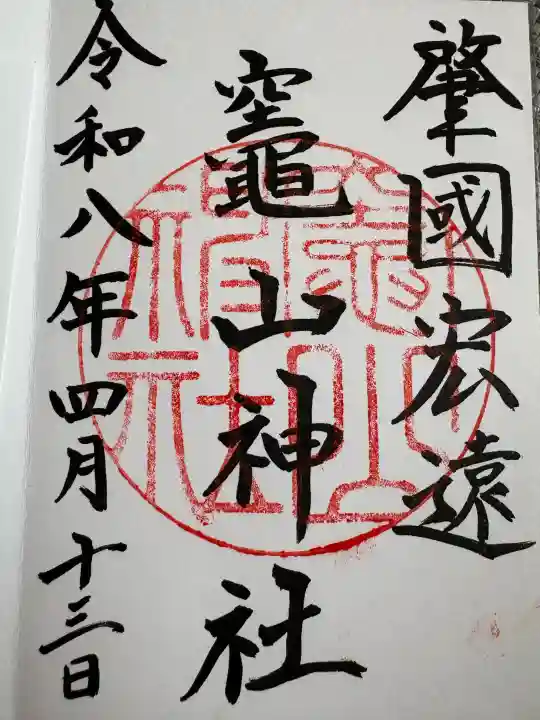 肇國宏遠
竈山神社
令和八年四月十三日
竈山神社